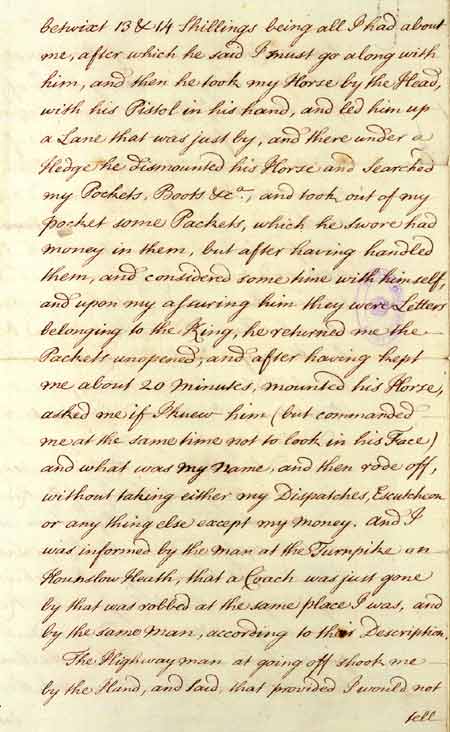 betwixt 13 & 14 Shillings being all I had about
me, after which he said I must go along with
him, and then he took my Horse by the Head,
with his Pistol in his hand, and led him up
a Lane that was just by, and there under a
Hedge he dismounted his Horse and Searched
my Pockets, Boots &cª., and took out of my
pocket some Packets, which he swore had
money in them, but after having handled
them, and considered some time with himself,
and upon my assuring him they were Letters
belonging to the King, he returned me the
Packets unopened, and after having kept
me about 20 Minutes, mounted his Horse,
asked me if I knew him (but commanded
me at the same time not to look in his Face)
and what was my Name, and then rode off,
without taking either my Dispatches, Escutcheon
or any thing else except my money. And I
was informed by the Man at the Turnpike on
Hounslow Heath, that a Coach was just gone
by that was robbed at the same place I was, and
by the same Man, according to their Description.
The Highwayman at going off shook me
by the Hand, and said, that provided I would not
tell